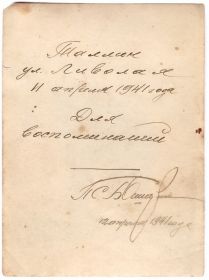 Таллин
ул. Ливолая
11 апреля 1941 года
Для
воспоминаний
11 апреля 1941 года